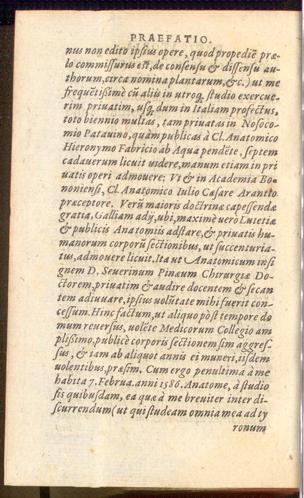 PRAEFATIO.
nus non edito ipsius opere, quod propediē præ-
lo commissurus est, de consensu & dissensu au-
thorum, circa nomina plantarum, &c.) ut me
frequētißimè cū aliis in utroq; studio exercue-
rim priuatim, usq; dum in Italiam profectus,
toto biennio multas, tam priuatas in Nosoco-
mio Patauino, quàm publicas à Cl. Anatomico
Hieronymo Fabricio ab Aqua pendēte, septem
cadauerum licuit uidere, manum etiam in pri
uatis operi admouere: Vt & in Academia Bo-
noniensi, Cl. Anatomico Iulio Cæsare Arantio
præceptore. Verū maioris doctrinæ capessendæ
gratia, Galliam adij, ubi, maximè uero Lutetiæ
& publicis Anatomiis adstare, & priuatis hu-
manorum corporū sectionibus, ut succenturia-
tus, admouere licuit. Ita ut Anatomicum insi
gnem D. Seuerinum Pinæum Chirurgiæ Do-
ctorem, priuatim & audire docentem & secan
tem adiuuare, ipsius volūtate mihi fuerit con-
cessum. Hinc factum, ut aliquo pòst tempore do
mum reuersus, uolēte Medicorum Collegio am
plißimo, publicè corporis sectionem sim aggres-
sus, & iam ab aliquot annis ei muneri, iisdem
uolentibus, præsim. Cum ergo penultima à me
habita 7. Februa. anni 1586. Anatome, à studio
sis quibusdam, ea quæ à me breuiter inter di-
scurrendum (ut qui studeam omnia mea ad ty
ronum